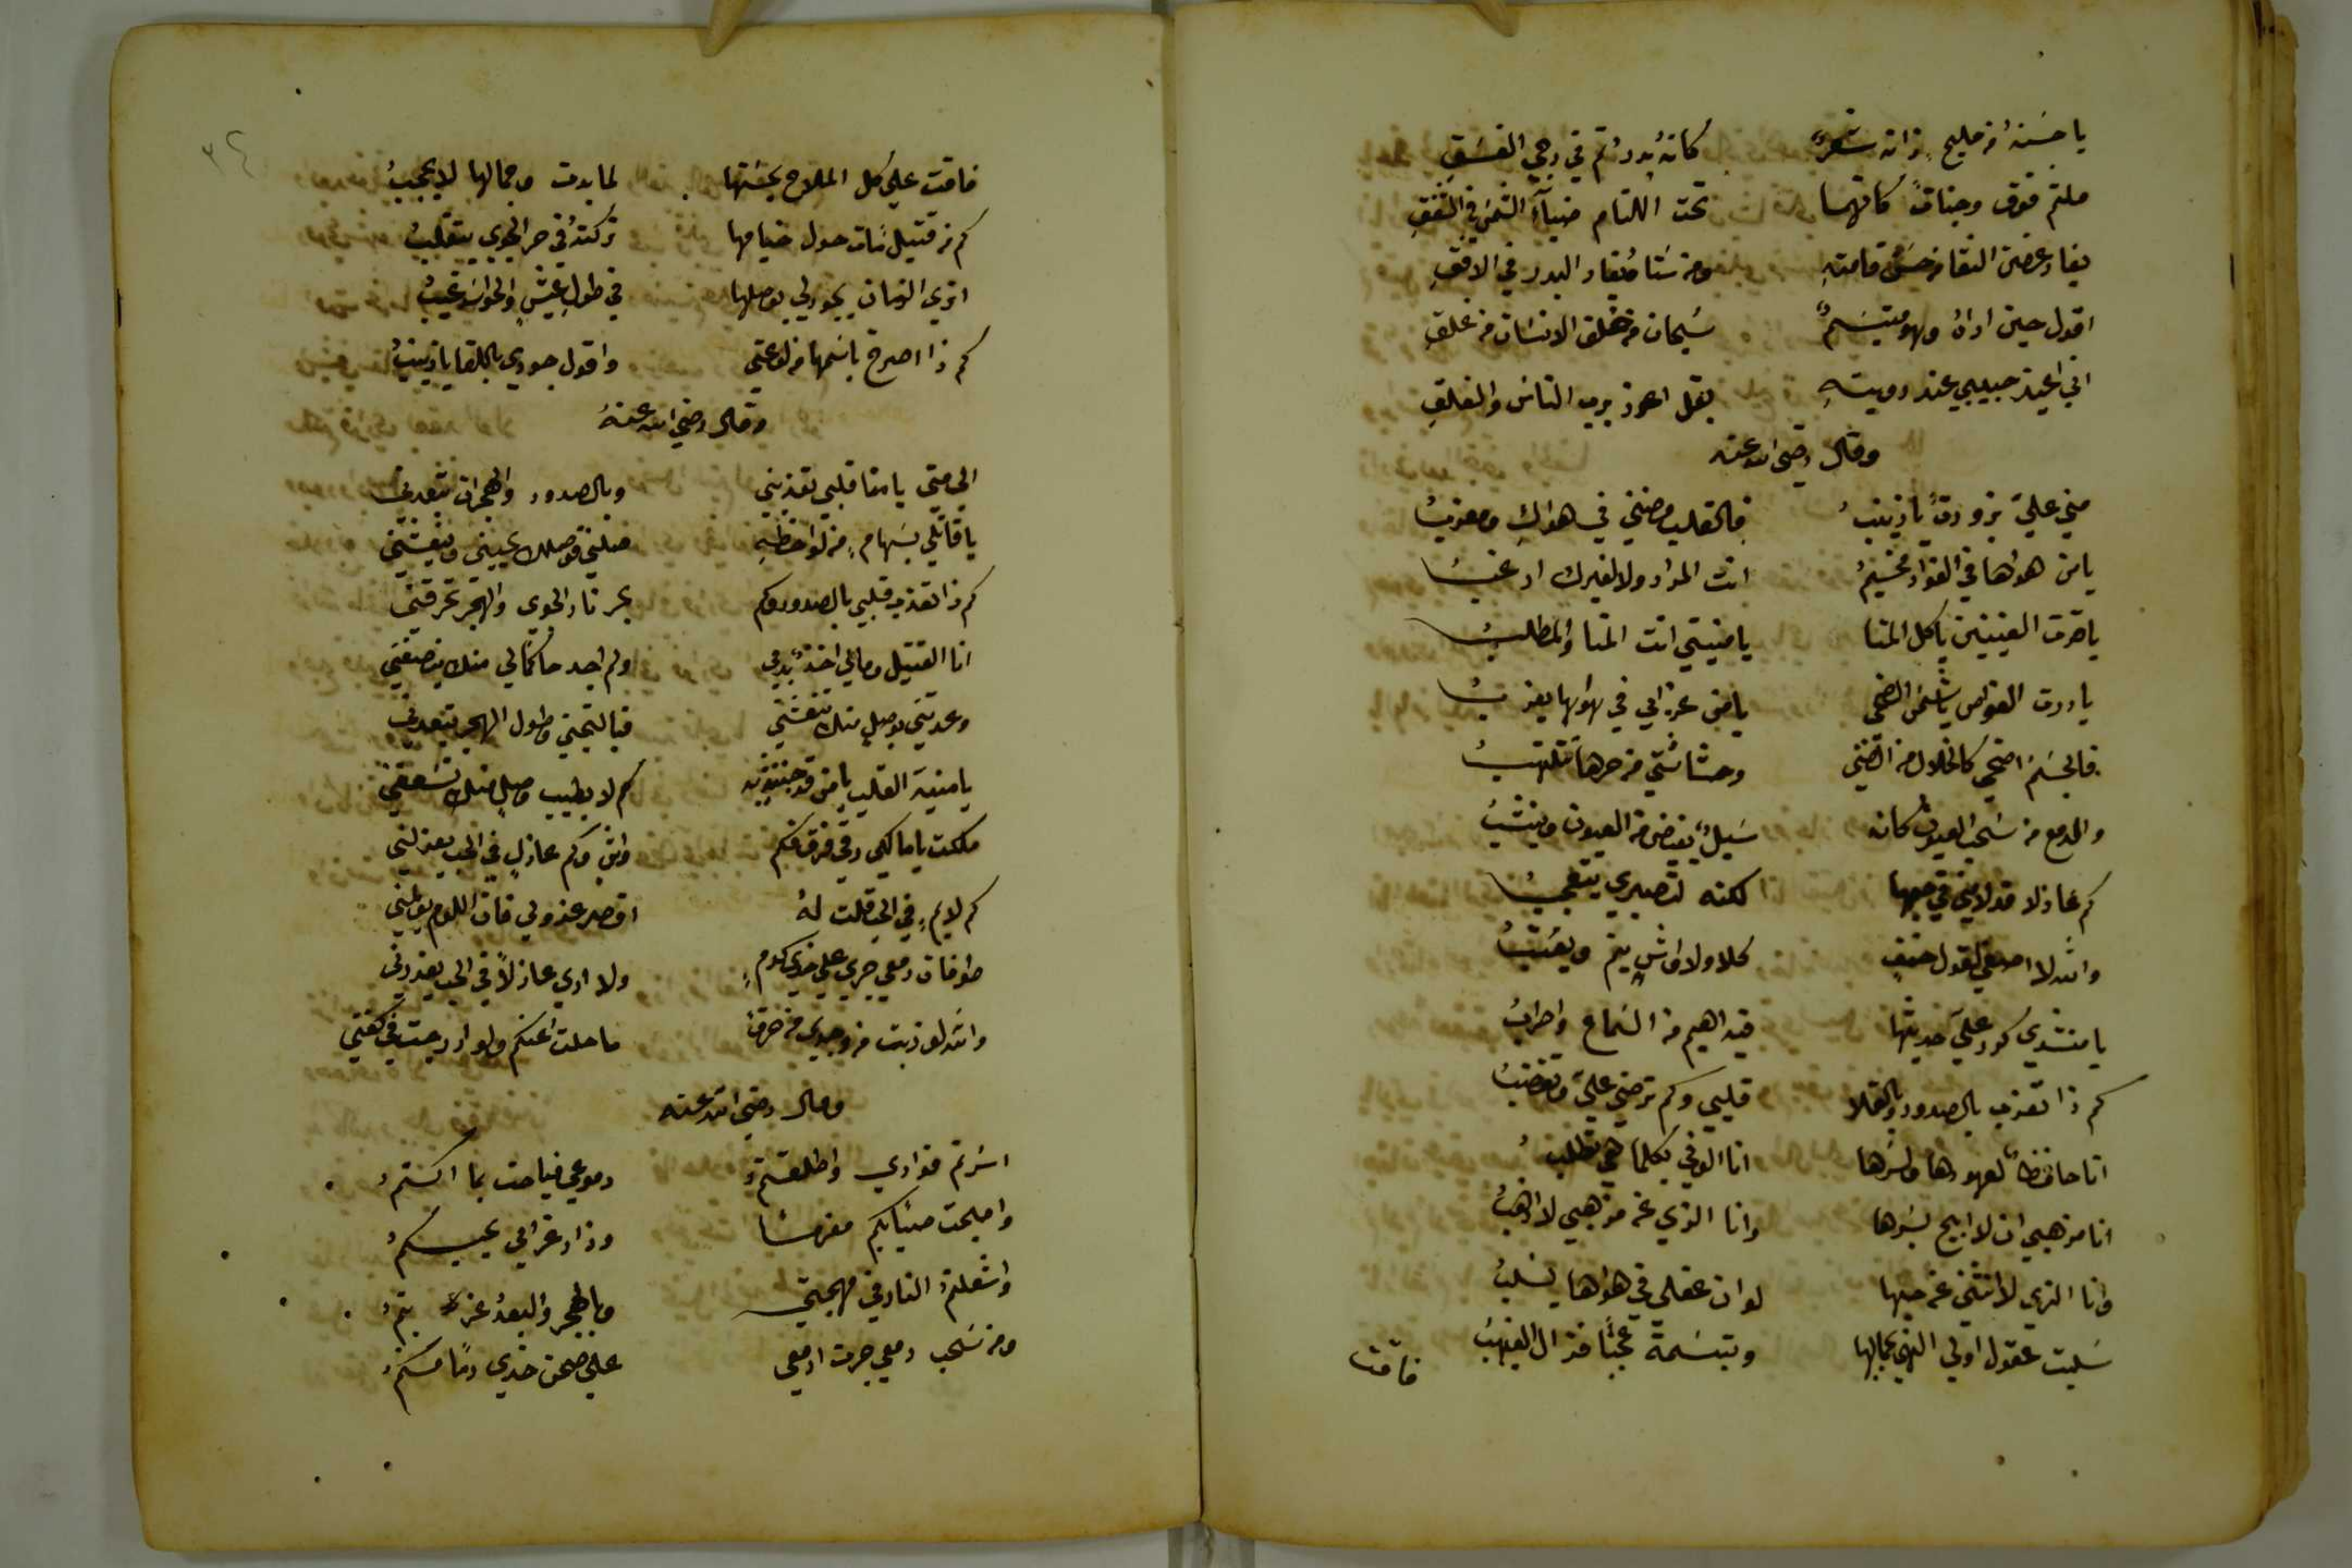 يا حسنهُ من مليح زانه شعرٌ كانهُ بدرُ تم في دجي الغسقِ
ملثم فوق وجنات كانهما تحت اللثام ضيآء الشمس في الشفقِ
يغار غصن النقا من حسن قامته ومن سنا يغار البدر في الافقِ
اقول حين اراهُ وهو مبتسمٌ سبحان من خلق الانسان من علقِ
اني اعيذ حبيبي عند رويتهِ بقل اعوذ برب الناس والفلقِ
وقال رضي الله عنه
مني عليّ بزورة يا زينبُ فالقلب مضني في هواكِ ومعذبُ
يا من هواها في الفواد مخيمُ انت المراد ولا لغيرك ارغبُ
يا قرت العينين يا كل المنا يا منيتي انت المنا والمطلبُ
يا درت الغواص يا شمس الضحي يا من غرامي في هواها يعذبُ
فالجسم اضحي كالخلال من الضني وحشاشتي من حرها تتلهبُ
والدمع من سحب العيون كانه سيلٌ يفيض من العيون
كم عاذلا قد لامني في حبها لكنه لتصبري يتعجبُ
والله لا اصغي لقول معنف كلا ولا واش ينم ويعتبُ
يا منشدي كرر علي حديثها فيه اهيم من السماع واطربُ
كم ذا تعذب بالصدود وبالقلا قلبي وكم ترضي عليّ وتغضبُ
انا حافظاً لعهودها ولسرها انا الوفي بكلما هي تطلبُ
انا مذهبي ان لا ابيح بسرها وانا الذي عن مذهبي لا اذهبُ
وانا الذي لا انثني عن حبها لو ان عقلي في هواها يسلبُ
سلبت عقول اولي النهي بجمالها وتبسمة عجباً فزال الغيهبُ
فاقت
٣٤
فاقت علي كل الملاح بحسنها لما بدت وجمالها لا يحجبُ
كم من قتيل بات حول خيامها تركتهُ في حر الجوي يتقلبُ
اتري الزمان يجود لي بوصلها في طول عيشٍ والحواسد غيبُ
كم ذا اصرخ باسمها من لوعتي واقول جودي باللقا يا زينبُ
وقال رضي الله عنهُ
الي متي يا منا قلبي تعذبني وبالصدود والهجران تبعدني
يا قاتلي بسهامٍ من لواحظهِ صلني فوصلك يحييني وينعشني
كم ذا تعذب قلبي بالصدود وكم بحر نار الجوي والهجر تحرقني
انا القتيل ومالي اخذٌ بدمي ولم اجد حاكماً لي منك ينصفني
وعدتني بوصل منك تنعشني فبالتجني وطول الهجر تبعدني
يا منية القلب يا من قد به كم لا بطيب وصل منك تسعفني
ملكت يا مالكي رقي فرق فكم واشٍ وكم عاذلٍ في الحب يعذلني
كم لايمٍ في الحب قلت لهُ اقصر عذولي فان اللوم يولمني
طوفان دمعي جري علي خدي كدمٍ ولا اري عاذلاً في الحب يعذرني
والله لو ذبت من وجدي ومن حرق ما حلت عنكم ولو ادرجت في كفني
وقال رضي الله عنه
اسرتم فوادي واطلقتمُ دموعي فباحت بما اكتمُ
واصبحت صبّا بكم مغرماً وزاد غرامي بحبكمُ
واشعلتمُ النار في مهجتي وبالهجر والبعد عذبتمُ
ومن سحب دمعي جرت ادمعي علي صحن خدي دماً منكمُ